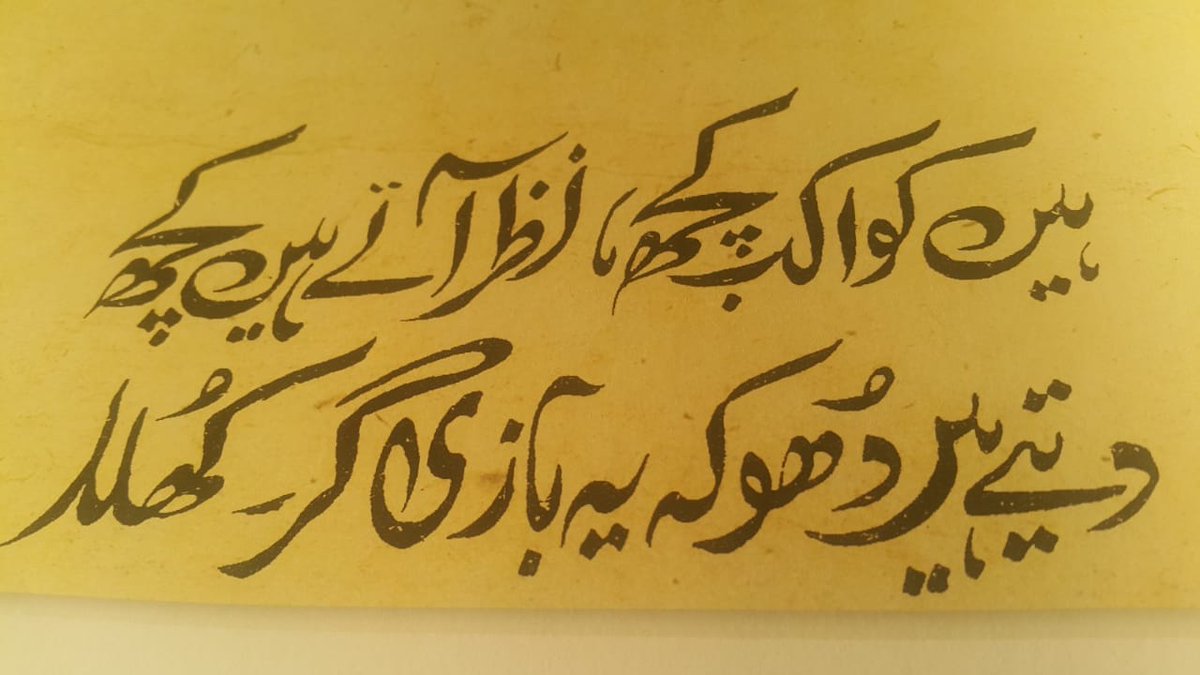 ہیں کواکب کچھ، نظر آتے ہیں کچھ
دیتے ہیں دُھوکہ یہ بازی گر کُھلا